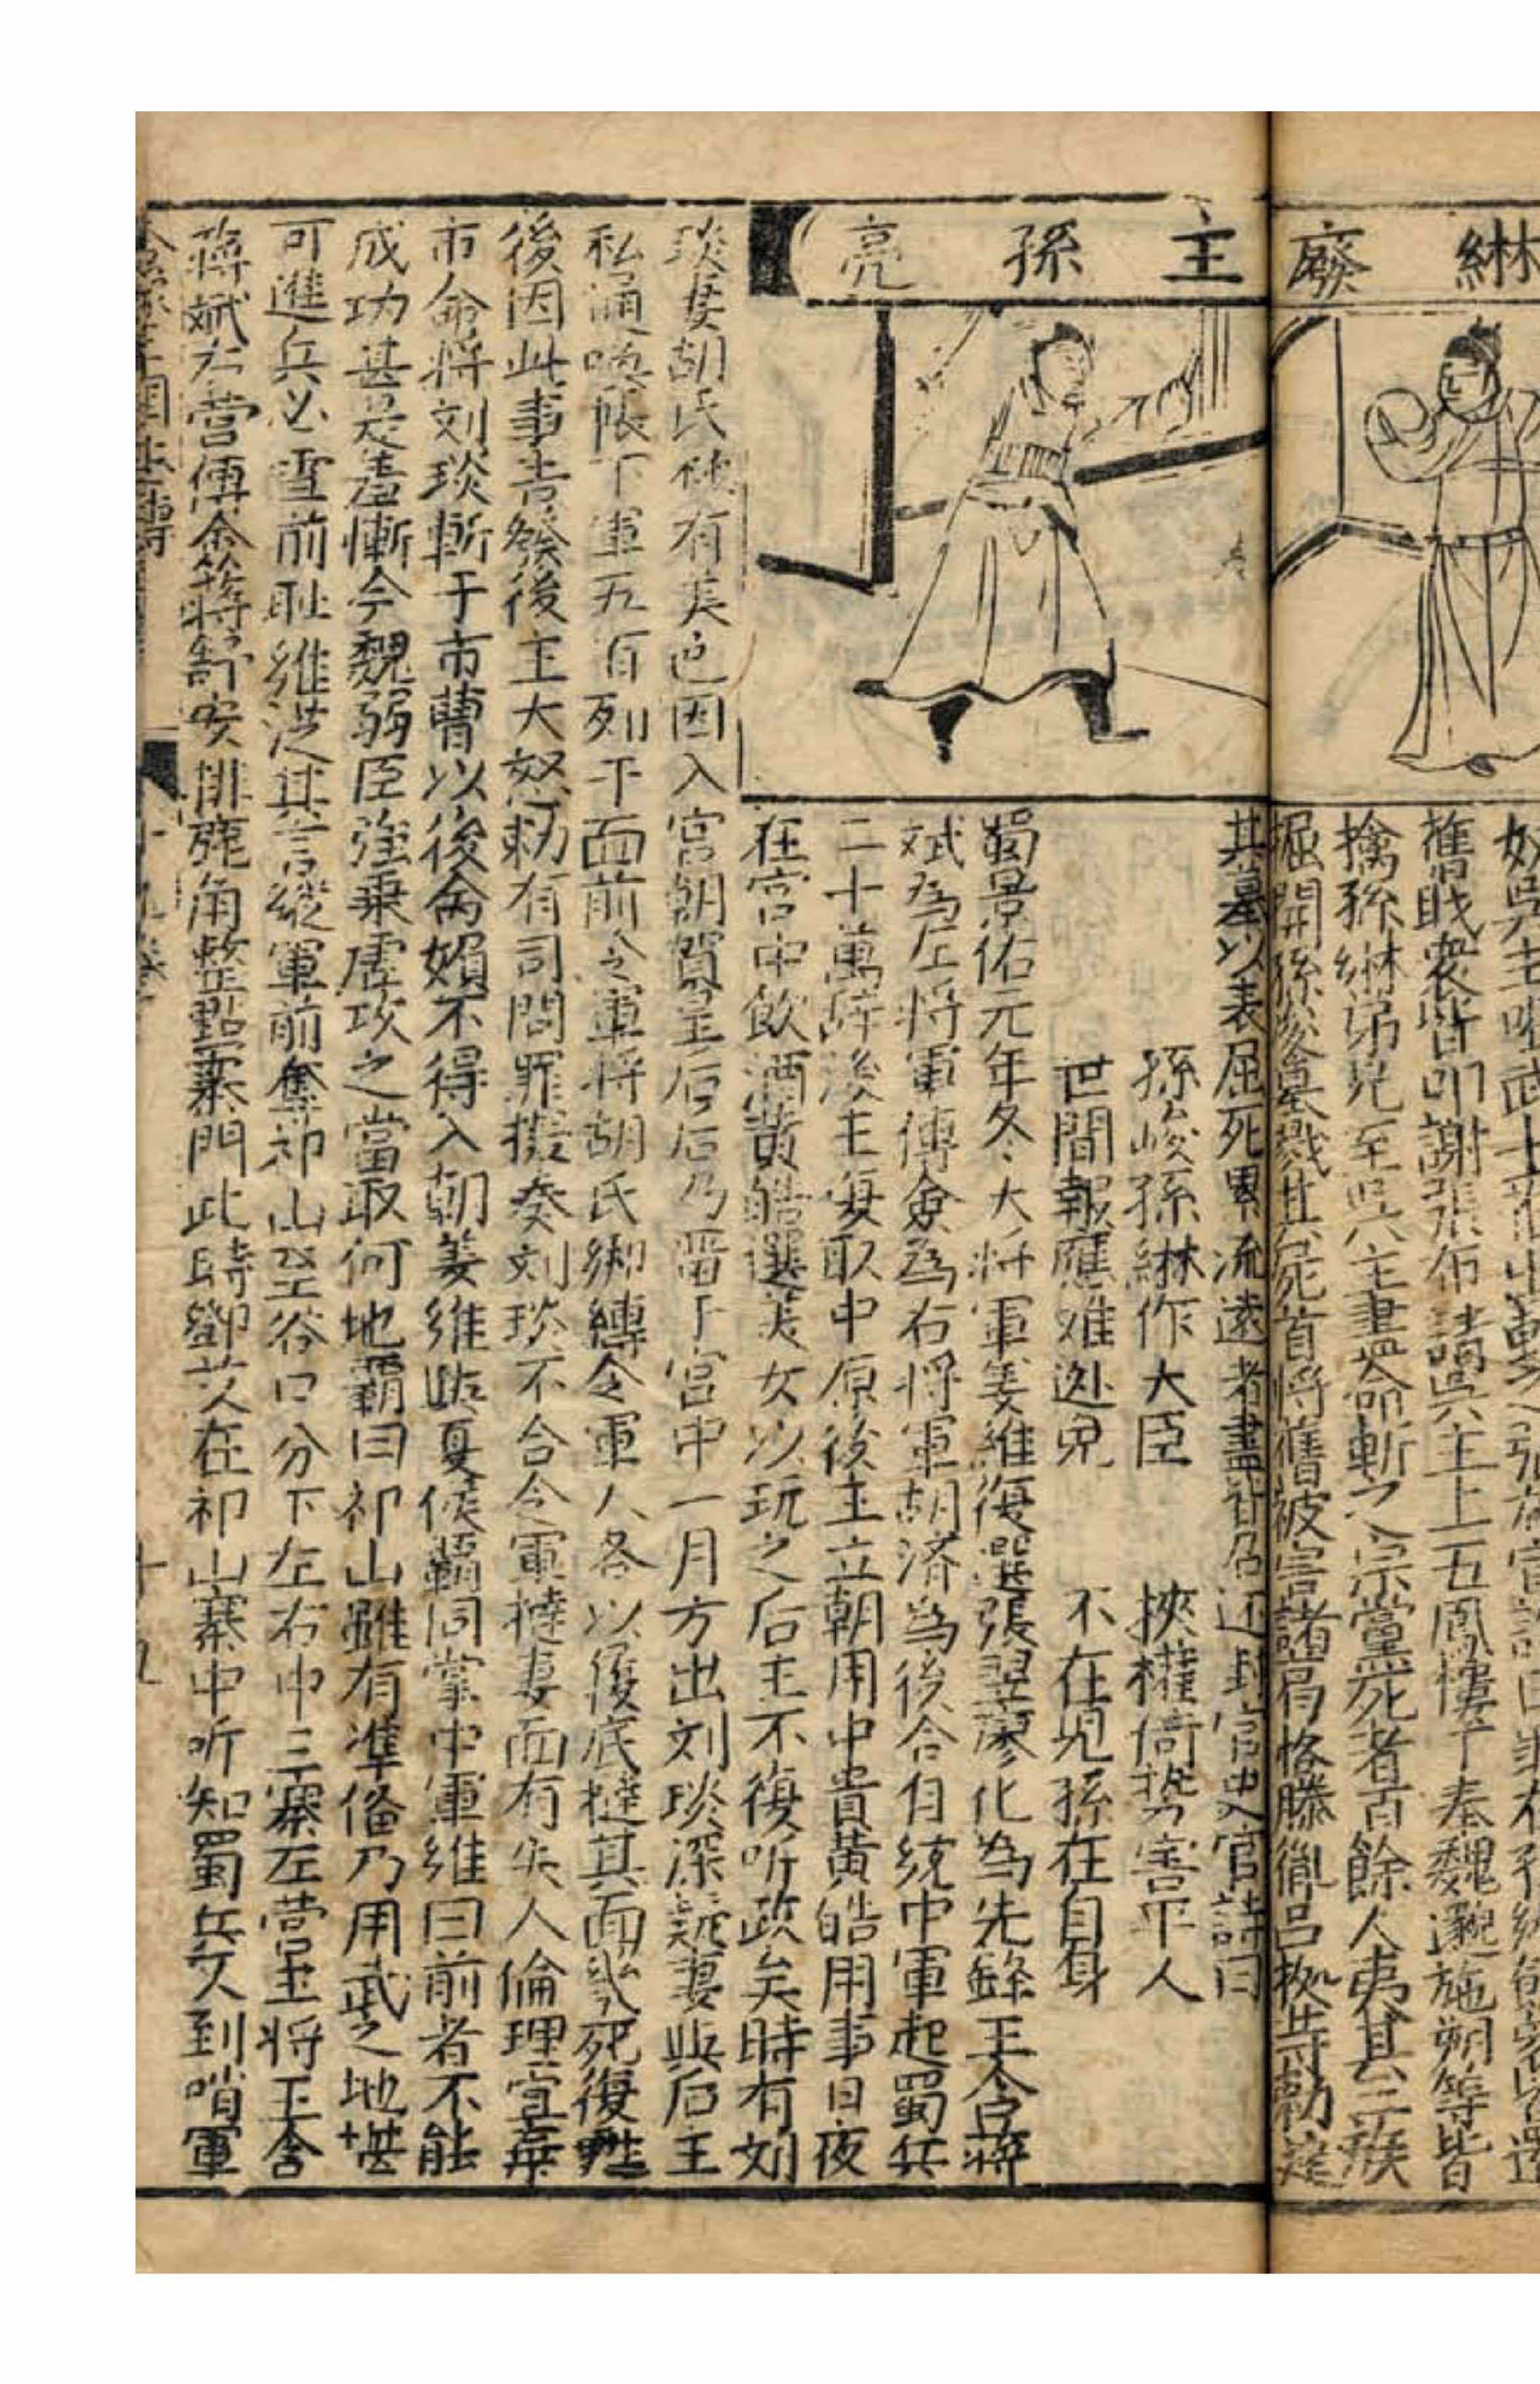 綝廢主孫亮
舊職衆皆叩謝張布請吳主上五鳳樓于奉魏邈施朔等皆
擒孫綝弟兄至吳主盡命斬之宗黨死者百餘人夷其三族
掘開孫峻墓戮其屍首將舊被害諸葛恪滕胤呂據等
其墓以表屈死累流遠者盡皆召还
孫峻孫綝作大臣 挾權倚势害平人
世間報應难迯免 不在児孫在自身
蜀景佑元年冬大将軍姜維復選張翌廖化為先鋒王含蔣
斌為左将軍傅僉為右将軍胡济為後合自統中軍起蜀兵
二十萬辞後主每取中原後主立朝用中貴黄皓用事日夜
在宫中飲酒黄皓選美女以玩之后主不復听政矣時有刘
琰妻胡氏有美色因入宫朝賀皇后后乃畱于宫中一月方出刘琰深疑妻與后主
私通喚帳下軍五百列于面前令軍将胡氏綁縛令軍人各以履底撻其面幾死復甦
後因此事告發後主大怒勑有司問罪擬奏刘琰不合令軍撻妻面有失人倫理宜棄
市命将刘琰斬于市曹以後命婦不得入朝姜維與夏侯覇同掌中軍維曰前者不能
成功甚是羞慚今魏弱臣強乗虚攻之當取何地覇曰祁山雖有準俻乃用武之地堪
可進兵必雪前耻維從其言縱軍前奪祁山至谷口分下左右中三寨左营王将王含
蔣斌右营傅僉蔣舒安排鹿角整點寨門此時鄧艾在祁山寨中听知蜀兵又到哨軍
十九卷
十九